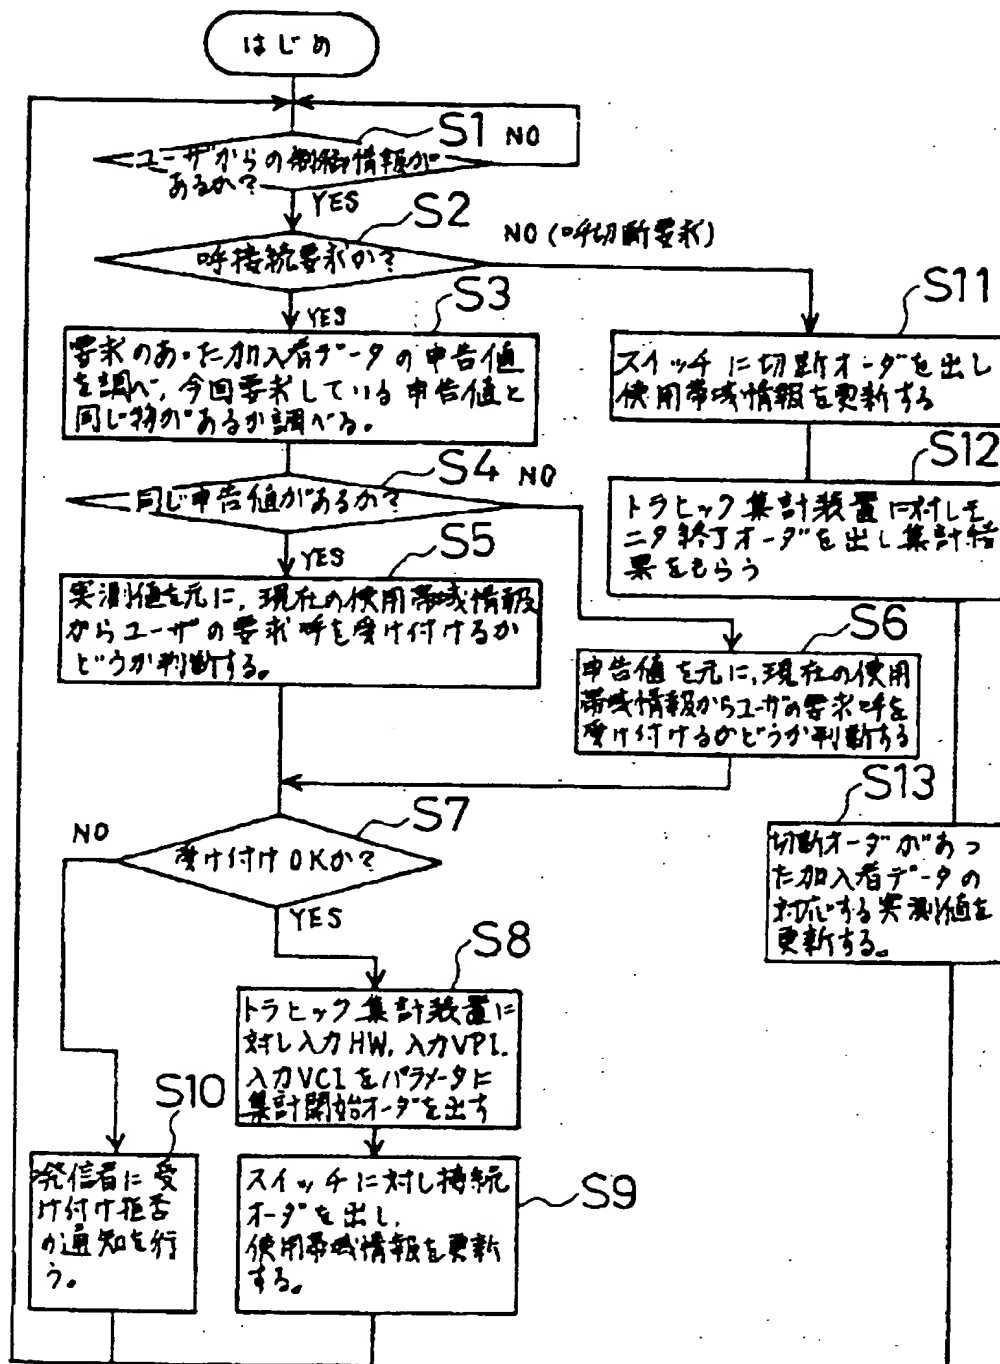 はじめ
S1
NO
ユーザからの制御情報が
あるか?
YES
S2
呼接続要求か?
NO (呼切断要求)
YES
S3
要求のあった加入者データの申告値
を調べ,今回要求している申告値と
同じ物があるか調べる。
S4
NO
同じ申告値があるか?
YES
S5
実測値を元に,現在の使用帯域情報
からユーザの要求呼を受け付けるか
どうか判断する。
S6
申告値を元に,現在の使用
帯域情報からユーザの要求呼を
受け付けるかどうか判断する
S7
NO
受け付けOKか?
YES
S8
トラヒック集計装置に
対し入力HW,入力VPI.
入力VCIをパラメータに
集計開始オーダを出す
S9
スイッチに対し接続
オーダを出し,
使用帯域情報を更新
する。
S10
発信者に受
け付け拒否
の通知を行
う。
S11
スイッチに切断オーダを出し
使用帯域情報を更新する
S12
トラヒック集計装置に対しモ
ニタ終了オーダを出し集計結
果をもらう
S13
切断オーダがあっ
た加入者データの
対応する実測値を
更新する。